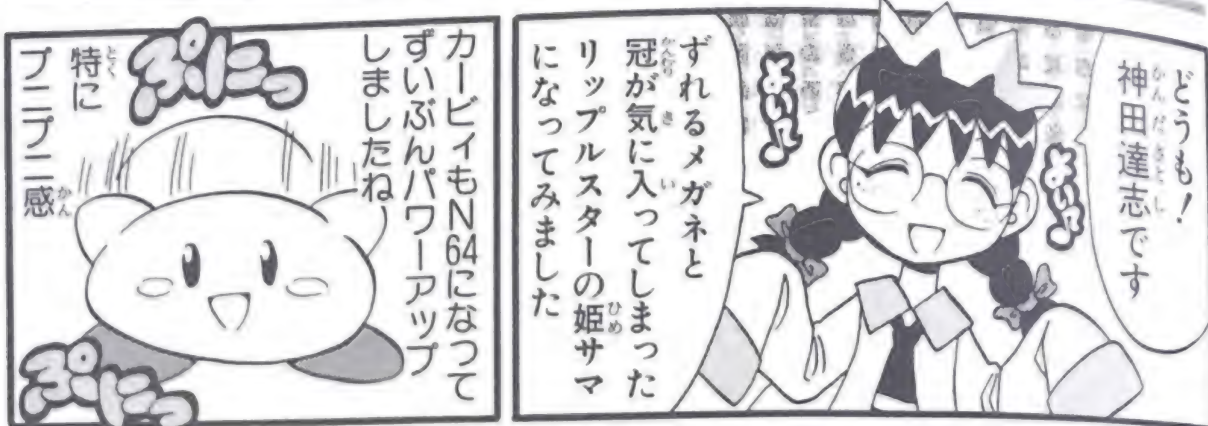 どうも!
神田達志です
よいっ♪
よいっ♪
ずれるメガネと
冠が気に入ってしまった
リップルスターの姫サマ
になってみました
カービィもN64になって
ずいぶんパワーアップ
しましたね
特に
プニプニ感
ぷにっ
ぷにっ